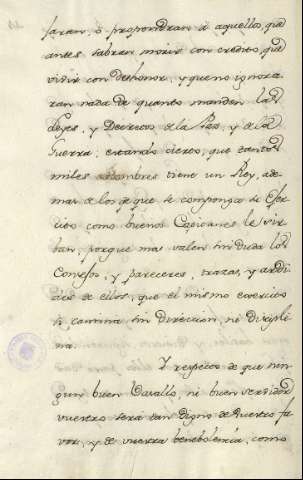 saran, ó propondran á aquellos, que
antes sabran morir con credito, que
vivir con deshonor, y que no ignora
ran nada de quanto manden las
Leyes, y Decretos de la Paz, y de la
Guerra, estando cierto, que tantos
miles hombres tiene un Rey, ade
mas de los de que se componga su Exer
cito como buenos Capitanes le sir
ban, porque mas valen sin duda los
Consejos, y pareceres, trazas, y ardi
des de ellos, que el mismo exercito
si camina sin direccion, ni discipli
na.
Y respecto de que nin
gun buen Vasallo, ni buen servidor
vuestro será tan digno de vuestro fa
vor, y de vuestra benebolencia, como